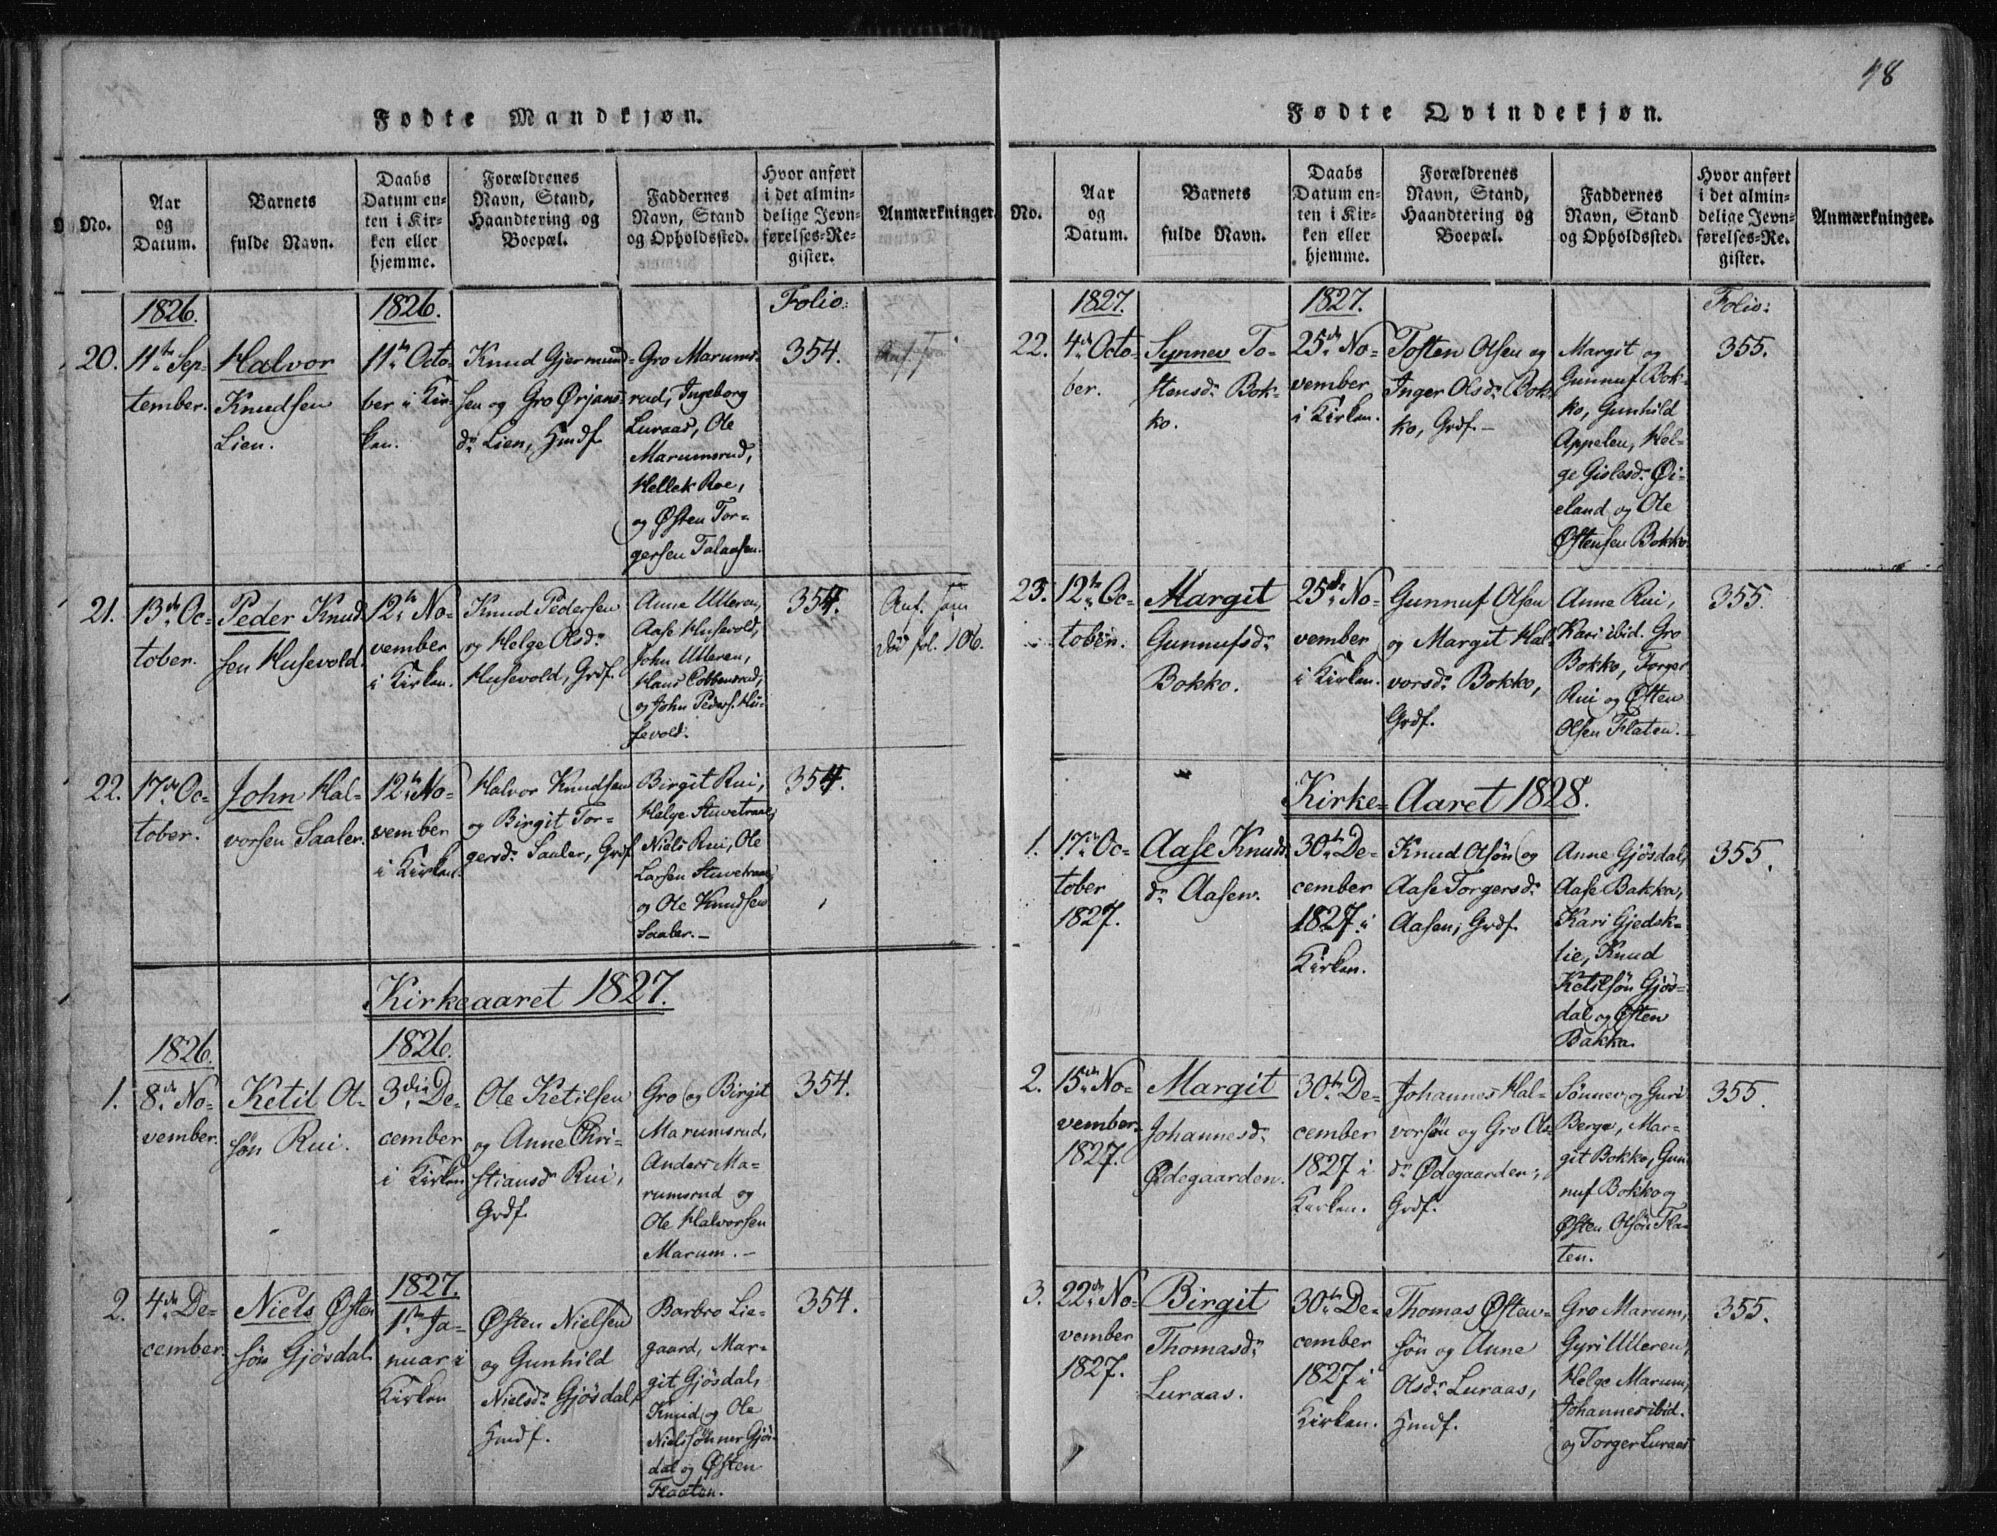 48
Fødte Mandkjøn.
No.
Aar
og
Datum.
Barnets
fulde Navn.
Daabs
Datum en-
ten i Kir-
ken eller
hjemme.
Forældrenes
Navn, Stand,
Haandtering og
Boepæl.
Faddernes
Navn, Stand
og Opholdssted.
Hvor anført
i det almin-
delige Jevn-
førelses-Re-
gister.
Anmærkninger.
1826.
1826.
Folio:
20.
11te Sep-
tember.
Halvor
Knudsen
Lien.
11te Octo-
ber i Kir-
ken.
Knud Gjermund-
sen og Gro Ørjans-
dr Lien, Hmdf.
Gro Marums-
rud, Ingeborg
Luraas, Ole
Marumsrud,
Hellek Roe,
og Østen Tor-
gersen Talaasen.
354.
21.
13de Oc-
tober.
Peder Knud-
sen Husevold.
12te No-
vember
i Kirken.
Knud Pedersen
og Helge Olsdr
Husevold, Grdf.
Anne Ulleren,
Aase Husevold,
John Ulleren,
Hans
og John Peders. Hu-
sevold.
354.
fol. 106.
22.
17de Oc-
tober.
John Hal-
vorsen Saaler.
12te No-
vember
i Kirken.
Halvor Knudsen
og Birgit Tor-
gersdr Saaler, Grdf.
Birgit Rui,
Helge Stuvetraae,
Niels Rui, Ole
Larsen Stuvetraae
og Ole Knudsen
Saaler.—
354.
Kirkeaaret 1827.
1826.
1826.
1.
8de No-
vember.
Ketil Ol-
søn Rui.
3die De-
cember
i Kirken
Ole Ketilsen
og Anne Chri-
stiansdr Rui,
Grdf.
Gro og Birgit
Marumsrud,
Anders Ma-
rumsrud og
Ole Halvorsen
Marum.—
354.
2.
4de De-
cember.
Niels Østen
søn Gjøsdal.
1827.
1ste Ja-
nuar i
Kirken
Østen Nielsen
og Gunhild
Nielsdr Gjøsdal,
Hmdf.
Barbro Lie-
gaard, Mar-
git Gjøsdal,
Knud og Ole
Nielssønner Gjøs-
dal og Østen
Flaaten.
354.
Fødte Qvindekjøn.
No.
Aar
og
Datum.
Barnets
fulde Navn.
Daabs
Datum en-
ten i Kir-
ken eller
hjemme.
Forældrenes
Navn, Stand,
Haandtering og
Boepæl.
Faddernes
Navn, Stand
og Opholdssted.
Hvor anført
i det almin-
delige Jevn-
førelses-Re-
gister.
Anmærkninger.
1827.
1827.
Folio:
22.
4de Octo-
ber.
Synnev To-
stensdr Bok-
ko.
25de No-
vember
i Kirken.
Tosten Olsen og
Inger Olsdr Bok-
ko, Grdf.—
Margit og
Gunnuf Bok-
ko, Gunhild
Appelen, Hel-
ge Gislesdr Øi-
eland og Ole
Østensen Bokko.
355.
23.
12te Oc-
tober.
Margit
Gunnufsdr
Bokko.
25de No-
vember
i Kirken.
Gunnuf Olsen
og Margit Hal-
vorsdr Bokko,
Grdf.
Anne Rui,
Kari ibid. Gro
Bokko, Torger
Rui og Østen
Olsen Flaten.—
355.
Kirke-Aaret 1828.
1.
17de Oc-
tober
1827.
Aase Knuds-
dr Aasen.
30te De-
cember
1827 i
Kirken.
Knud Olsøn og
Aase Torgersdr
Aasen, Grdf.
Anne Gjøsdal,
Aase Bakka,
Kari Gjedsk-
lie, Knud
Ketilsøn Gjøs-
dal og Østen
Bakka.
355.
2.
15de No-
vember
1827.
Margit
Johannesdr
Ødegaarden.
30te De-
cember
1827 i
Kirken.
Johannes Hal-
vorsøn og Gro Ols-
dr Ødegaarden,
Grdf.
Sønnev og Guri
Berge, Mar-
git Bokko, Gun-
nuf Bokko og
Østen Olsøn Fla-
ten.
355.
3.
22de No-
vember
1827.
Birgit
Thomasdr
Luraas.
30te De-
cember
1827 i
Kirken.
Thomas Østen-
søn og Anne
Olsdr Luraas,
Hmdf.
Gro Marum,
Gyri Ulleren,
Helge Marum,
Johannes ibid.
og Torger Luraas
355.